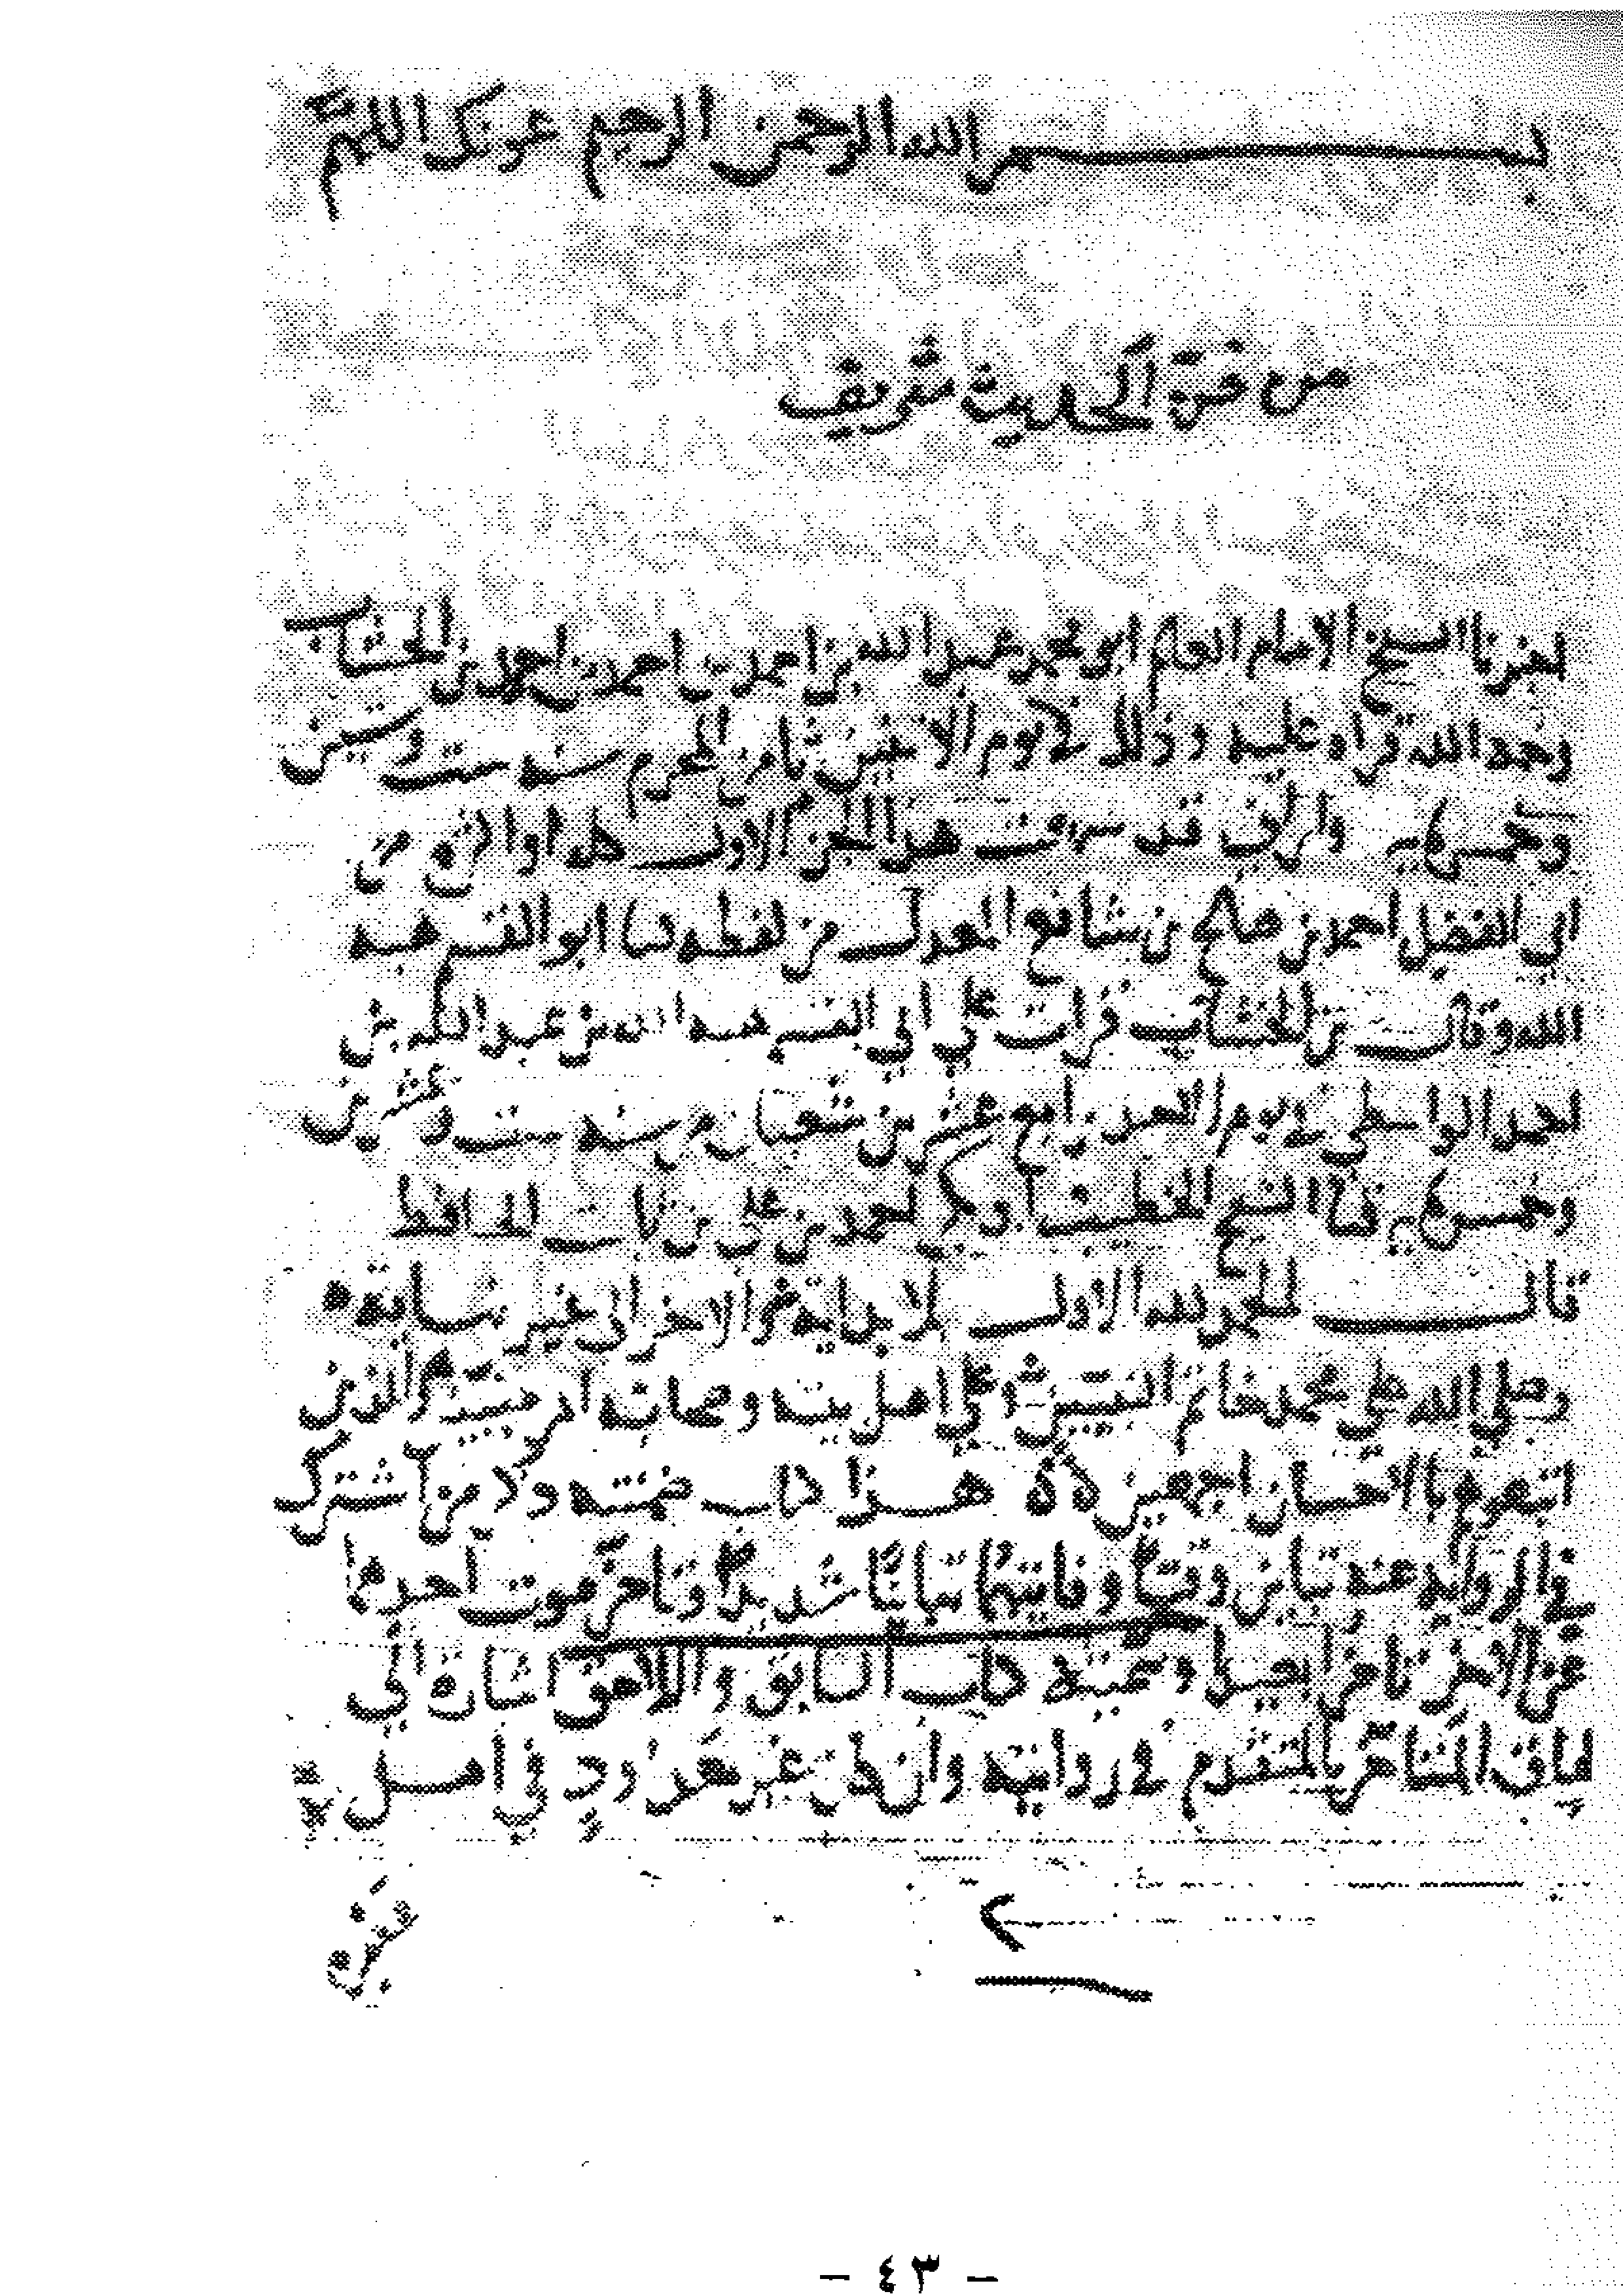 بسم الله الرحمن الرحيم عونك اللهم
من فن الحديث شريف
اخبرنا الشيخ الامام العلم ابو محمد عبد الله بن احمد بن احمد بن احمد بن الخشاب
رحمه الله قراه عليه وذلك في يوم الاثنين ثامن المحرم سنه ست وستين
وخمسمايه واراني قد سمعت هذا الجزء الاول من
ابي الفضل احمد بن صالح بن شافع المعدل من لفظه ثنا ابو القسم هبه
الله وقال بن الخشاب قرات على ابي القسم هبه الله بن عبد الله بن
احمد الواسطي يوم الاحد رابع عشر من شعبان من سنه ست وعشرين
وخمسمايه ثنا الشيخ الخطيب ابو بكر احمد بن علي بن ثابت الحافظ
قال الحمد لله الاول بلا بداية والاخر الى غير نهاية
وصلى الله على محمد خاتم النبيين وعلى اهل بيته وصحابته والذين
اتبعوهم باحسان اجمعين هذا كتاب ضمنته ذكر من اشترك
في الرواية عنه تباين وقت وفاتيهما تباينا شديدا وتاخر موت احدهما
عن الاخر تاخرا بعيدا وسميته كتاب السابق واللاحق اشارة الى
لحاق المتاخر بالمتقدم في روايته وان كان غير معدود في اهل